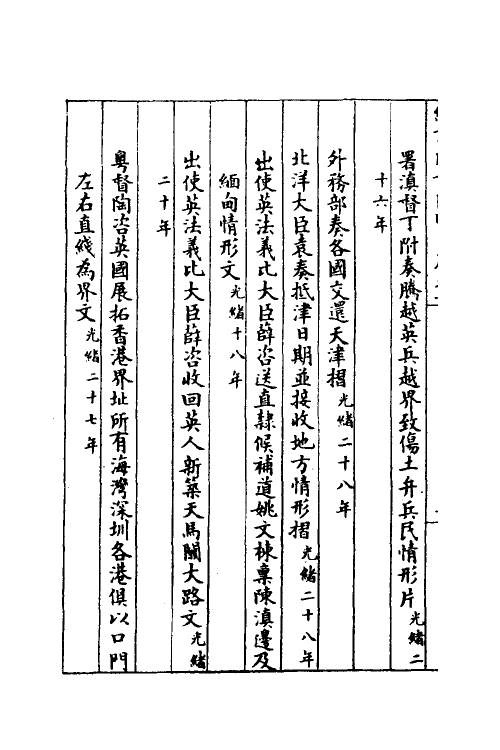 署滇督丁附奏騰越英兵越界致傷土弁兵民情形片光緒二
十六年
外務部奏各國交還天津摺光緒二十八年
北洋大臣袁奏抵津日期並接收地方情形摺光緒二十八年
出使英法義比大臣薛咨送直隸候補道姚文棟稟陳滇邊及
緬甸情形文光緒十八年
出使英法義比大臣薛咨收回英人新築天馬關大路文光緒
二十年
粵督陶咨英國展拓香港界址所有海灣深圳各港俱以口門
左右直綫為界文光緒二十七年